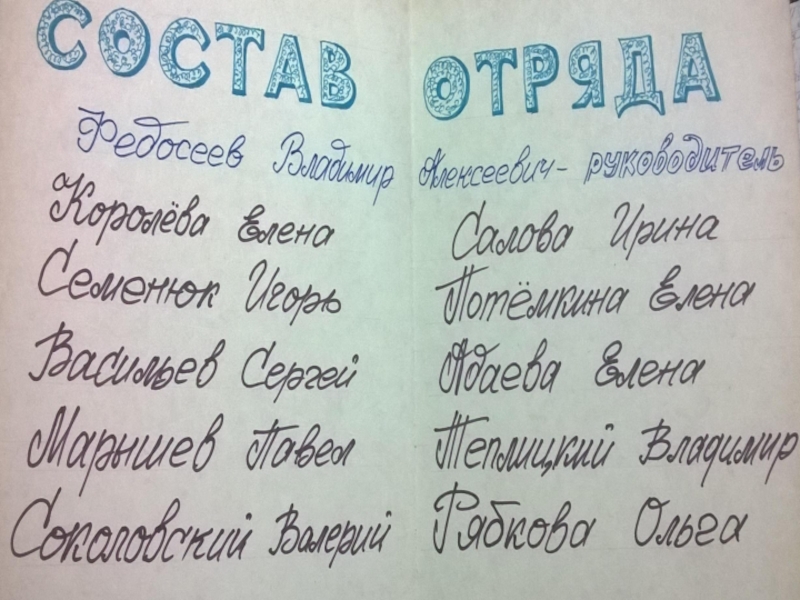 СОСТАВ ОТРЯДА
Федосеев Владимир Алексеевич - руководитель
Королёва Елена
Семенюк Игорь
Васильев Сергей
Марышев Павел
Соколовский Валерий
Салова Ирина
Потёмкина Елена
Абаева Елена
Теплицкий Владимир
Рябкова Ольга